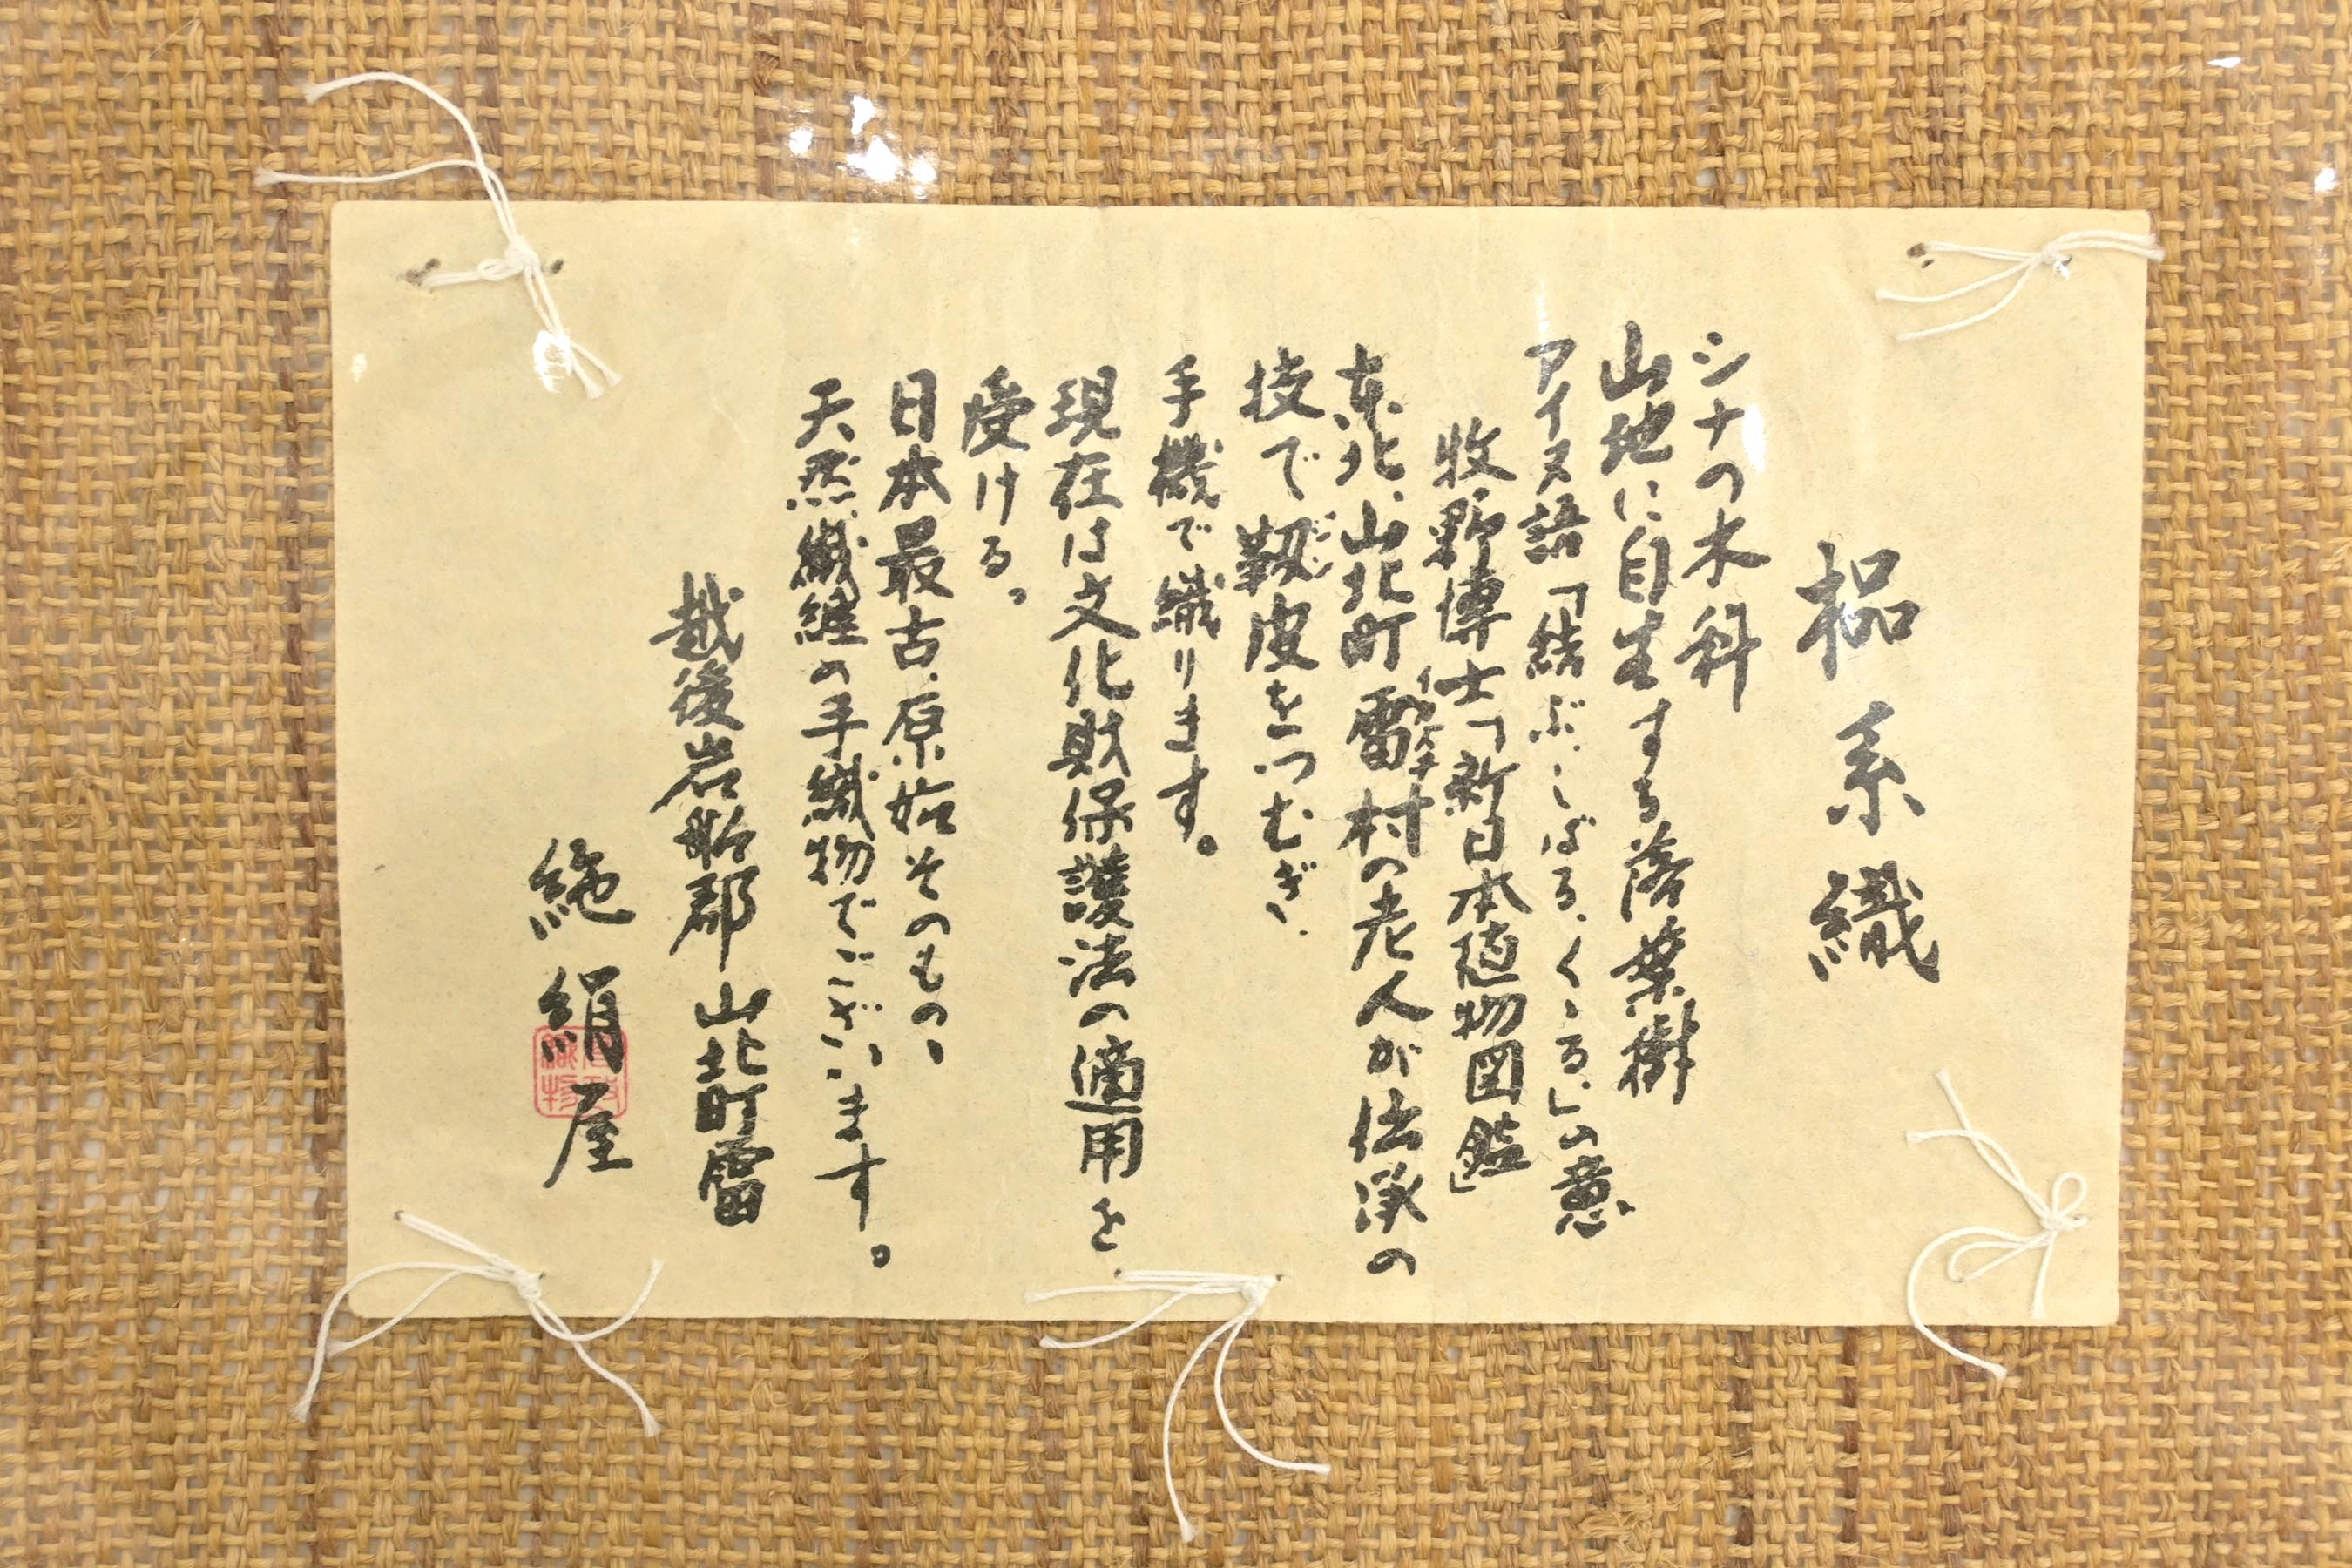 榀糸織
シナの木科
山地に自生する落葉樹
アイヌ語「結ぶ、しばる、くくる、」の意
牧野博士「新日本植物図鑑」
東北、山北町雷村の老人が伝承の
イカズチ
技で靱皮をつむぎ、
じんぴ
手機で織ります。
現在は文化財保護法の適用を
受ける。
日本最古、原始そのもの、
天然繊維の手織物でございます。
越後岩船郡山北町雷
絁絹屋